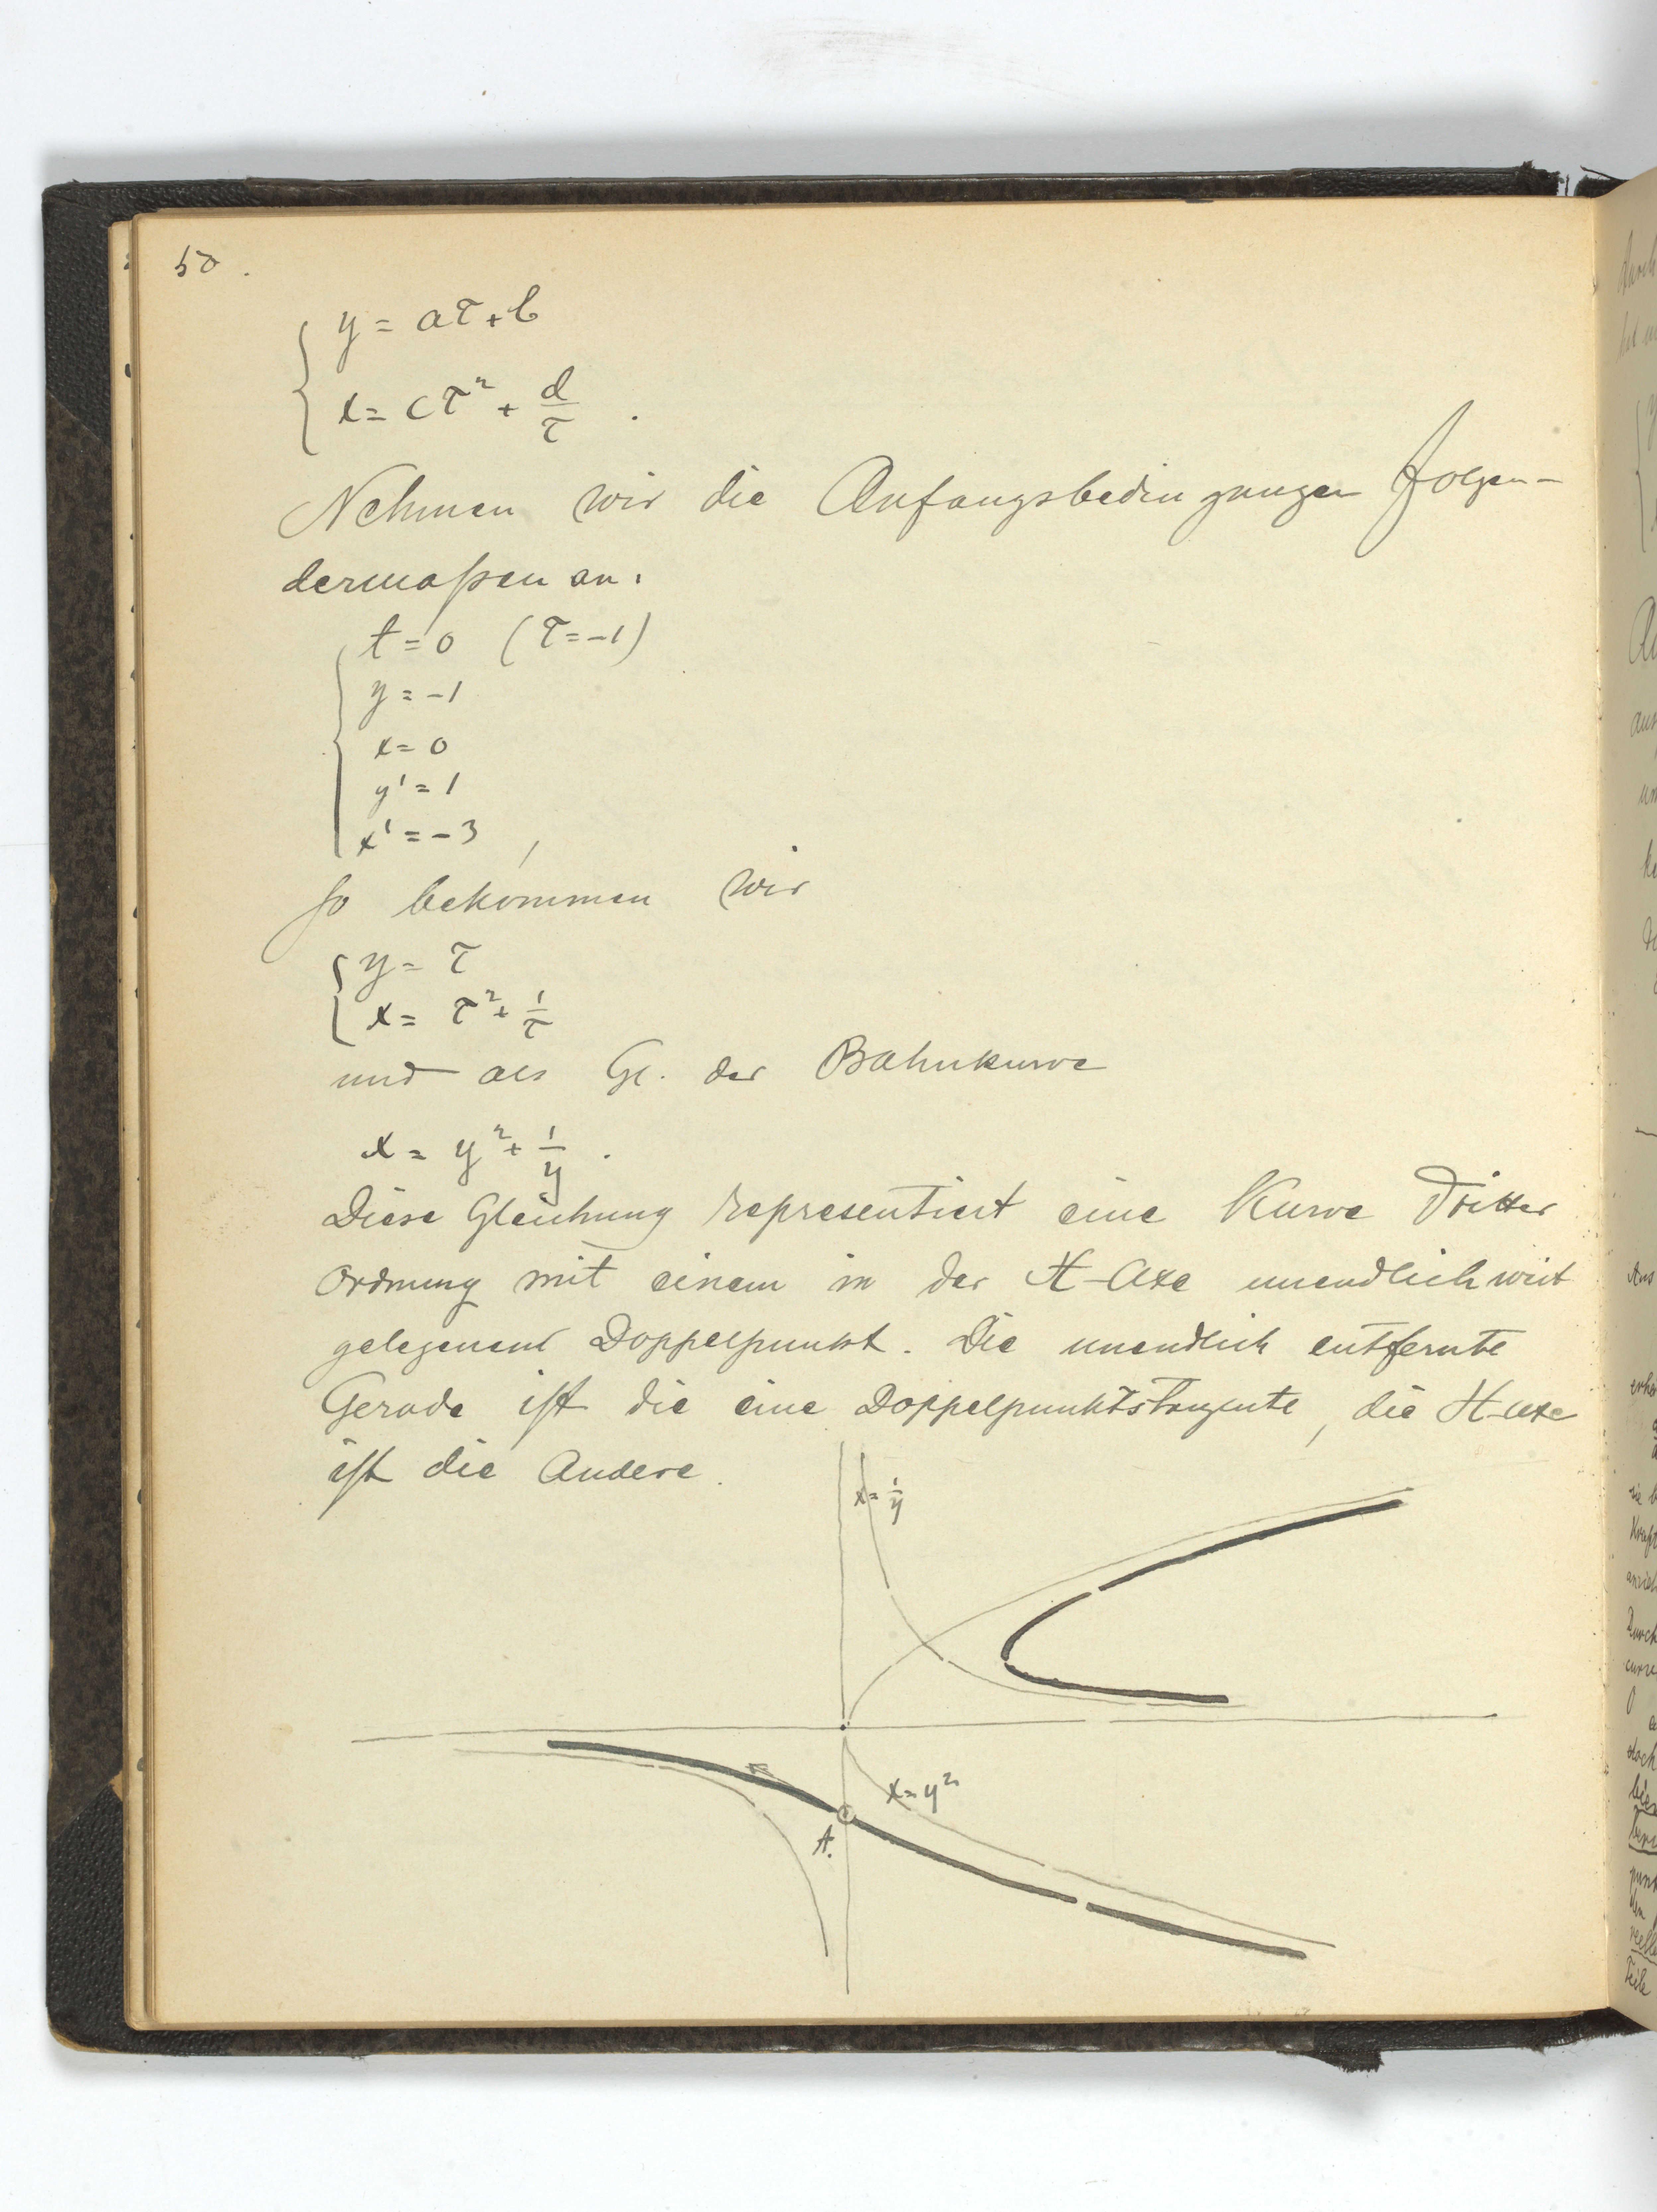 50.
y = aτ + b
x = cτ² + d/τ .
Nehmen wir die Anfangsbedingungen folgen-
dermaßen an:
t = 0 (τ = -1)
y = -1
x = 0
y' = 1
x' = -3 ,
so bekommen wir
y = τ
x = τ² + 1/τ
und als Gl. der Bahnkurve
x = y² + 1/y .
Diese Gleichung representiert eine Kurve dritter
Ordnung mit einem in der X-Axe unendlich weit
gelegenem Doppelpunkt. Die unendlich entfernte
Gerade ist die eine Doppelpunktstangente, die X-Axe
ist die Andere.
x = 1/y
x = y²
A.